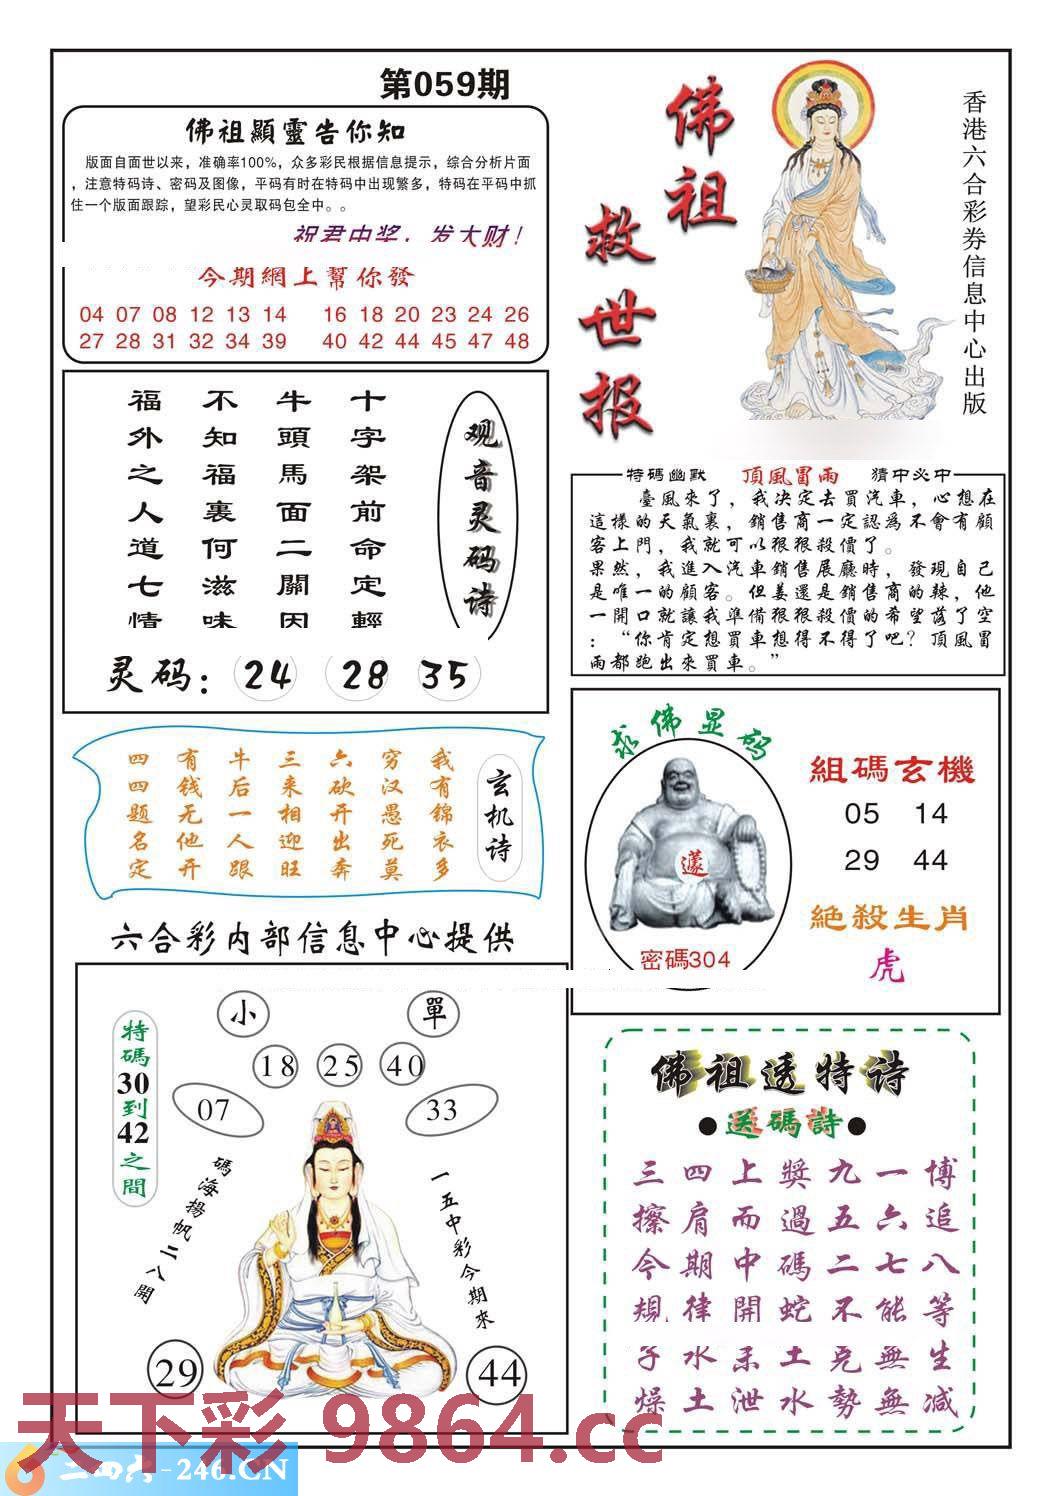 第059期
佛祖顯靈告你知
版面自面世以来，准确率100%，众多彩民根据信息提示，综合分析片面
，注意特码诗、密码及图像，平码有时在特码中出现繁多，特码在平码中抓
住一个版面跟踪，望彩民心灵取码包全中。。
祝君中奖，发大财！
今期網上幫你發
04 07 08 12 13 14 16 18 20 23 24 26
27 28 31 32 34 39 40 42 44 45 47 48
佛祖
救世报
香港六合彩券信息中心出版
观音灵码诗
十字架前命定輕
牛頭馬面二關因
不知福裏何滋味
福外之人道七情
灵码：24 28 35
特碼幽默 頂風冒雨 猜中必中
臺風來了，我决定去買汽車，心想在
這樣的天氣裏，銷售商一定認爲不會有顧
客上門，我就可以狠狠殺價了。
果然，我進入汽車銷售展廳時，發現自己
是唯一的顧客。但姜還是銷售商的辣，他
一開口就讓我準備狠狠殺價的希望落了空
：“你肯定想買車想得不得了吧？頂風冒
雨都跑出來買車。”
玄机诗
我有锦衣多
穷汉愚死莫
六砍开出奔
三来相迎旺
牛后一人跟
有钱无他开
四四题名定
求佛显码
密碼304
組碼玄機
05 14
29 44
絶殺生肖
虎
六合彩内部信息中心提供
特碼30到42之間
小 單
18 25 40
07 33
碼海揚帆二八開
一五中彩今期來
29 44
佛祖透特诗
●送碼詩●
博追八等生减
一六七能無無
九五二不克勢
獎過碼蛇土水
上而中開泄
四肩期律水土
三擦今規子燥
天下彩 9864.cc
二四六-246.CN